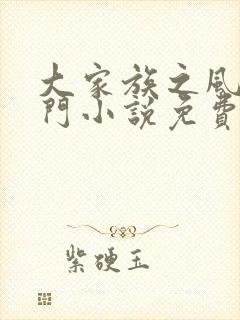 大家族之風
門小說免費
紫硬玉